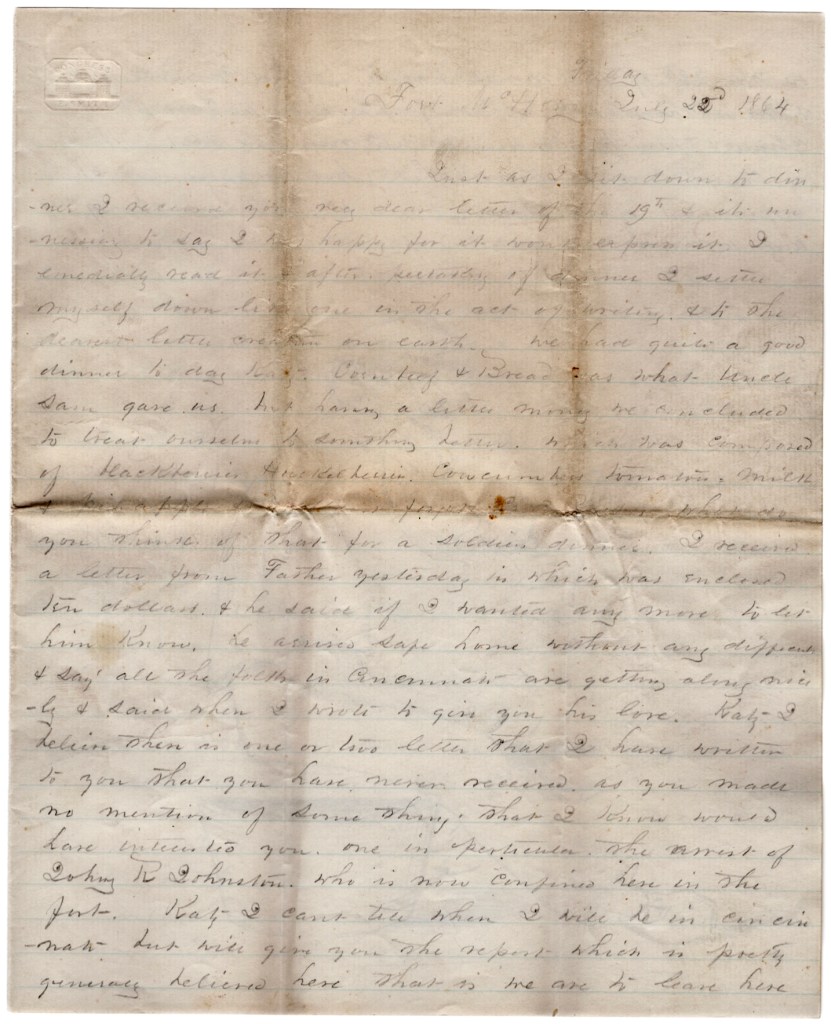 CONGRESS
Friday
Fort McHenry July 22d 1864
Just as I sit down to din
-ner I received your very dear letter of the 19th & its un
-nessissy to say I was happy for it wont express it. I
emediatly read it & after partaking of dinner I settle
myself down like one in the act of writing & to the
dearest little creation on earth. We had quite a good
dinner to day Katy. Cornbeef & Bread was what Uncle
Sam gave us. but having a little money we concluded
to treat ourselves to something better. which was composed
of blackberries Huckelberries. Cowcumbers tomatoes. milk
& what do
you think of that for a soldiers dinner. I received
a letter from Father yesterday in which was enclosed
ten dollars. & he said if I wanted any more to let
him know. he arrived safe home without any difficulty
& says all the folks in Cincinnati are getting along nice
-ly & said when I wrote to give you his love. Katy I
believe there is one or two letter that I have written
to you that you have never received. as you made
no mention of some things that I know would
have interested you. one in perticular. the arrest of
Johny R Johnston. who is now confined here in the
fort. Katy I cant tell when I will be in cincin
-nati but will give you the report which is pretty
generaly believed here that is we are to leave here